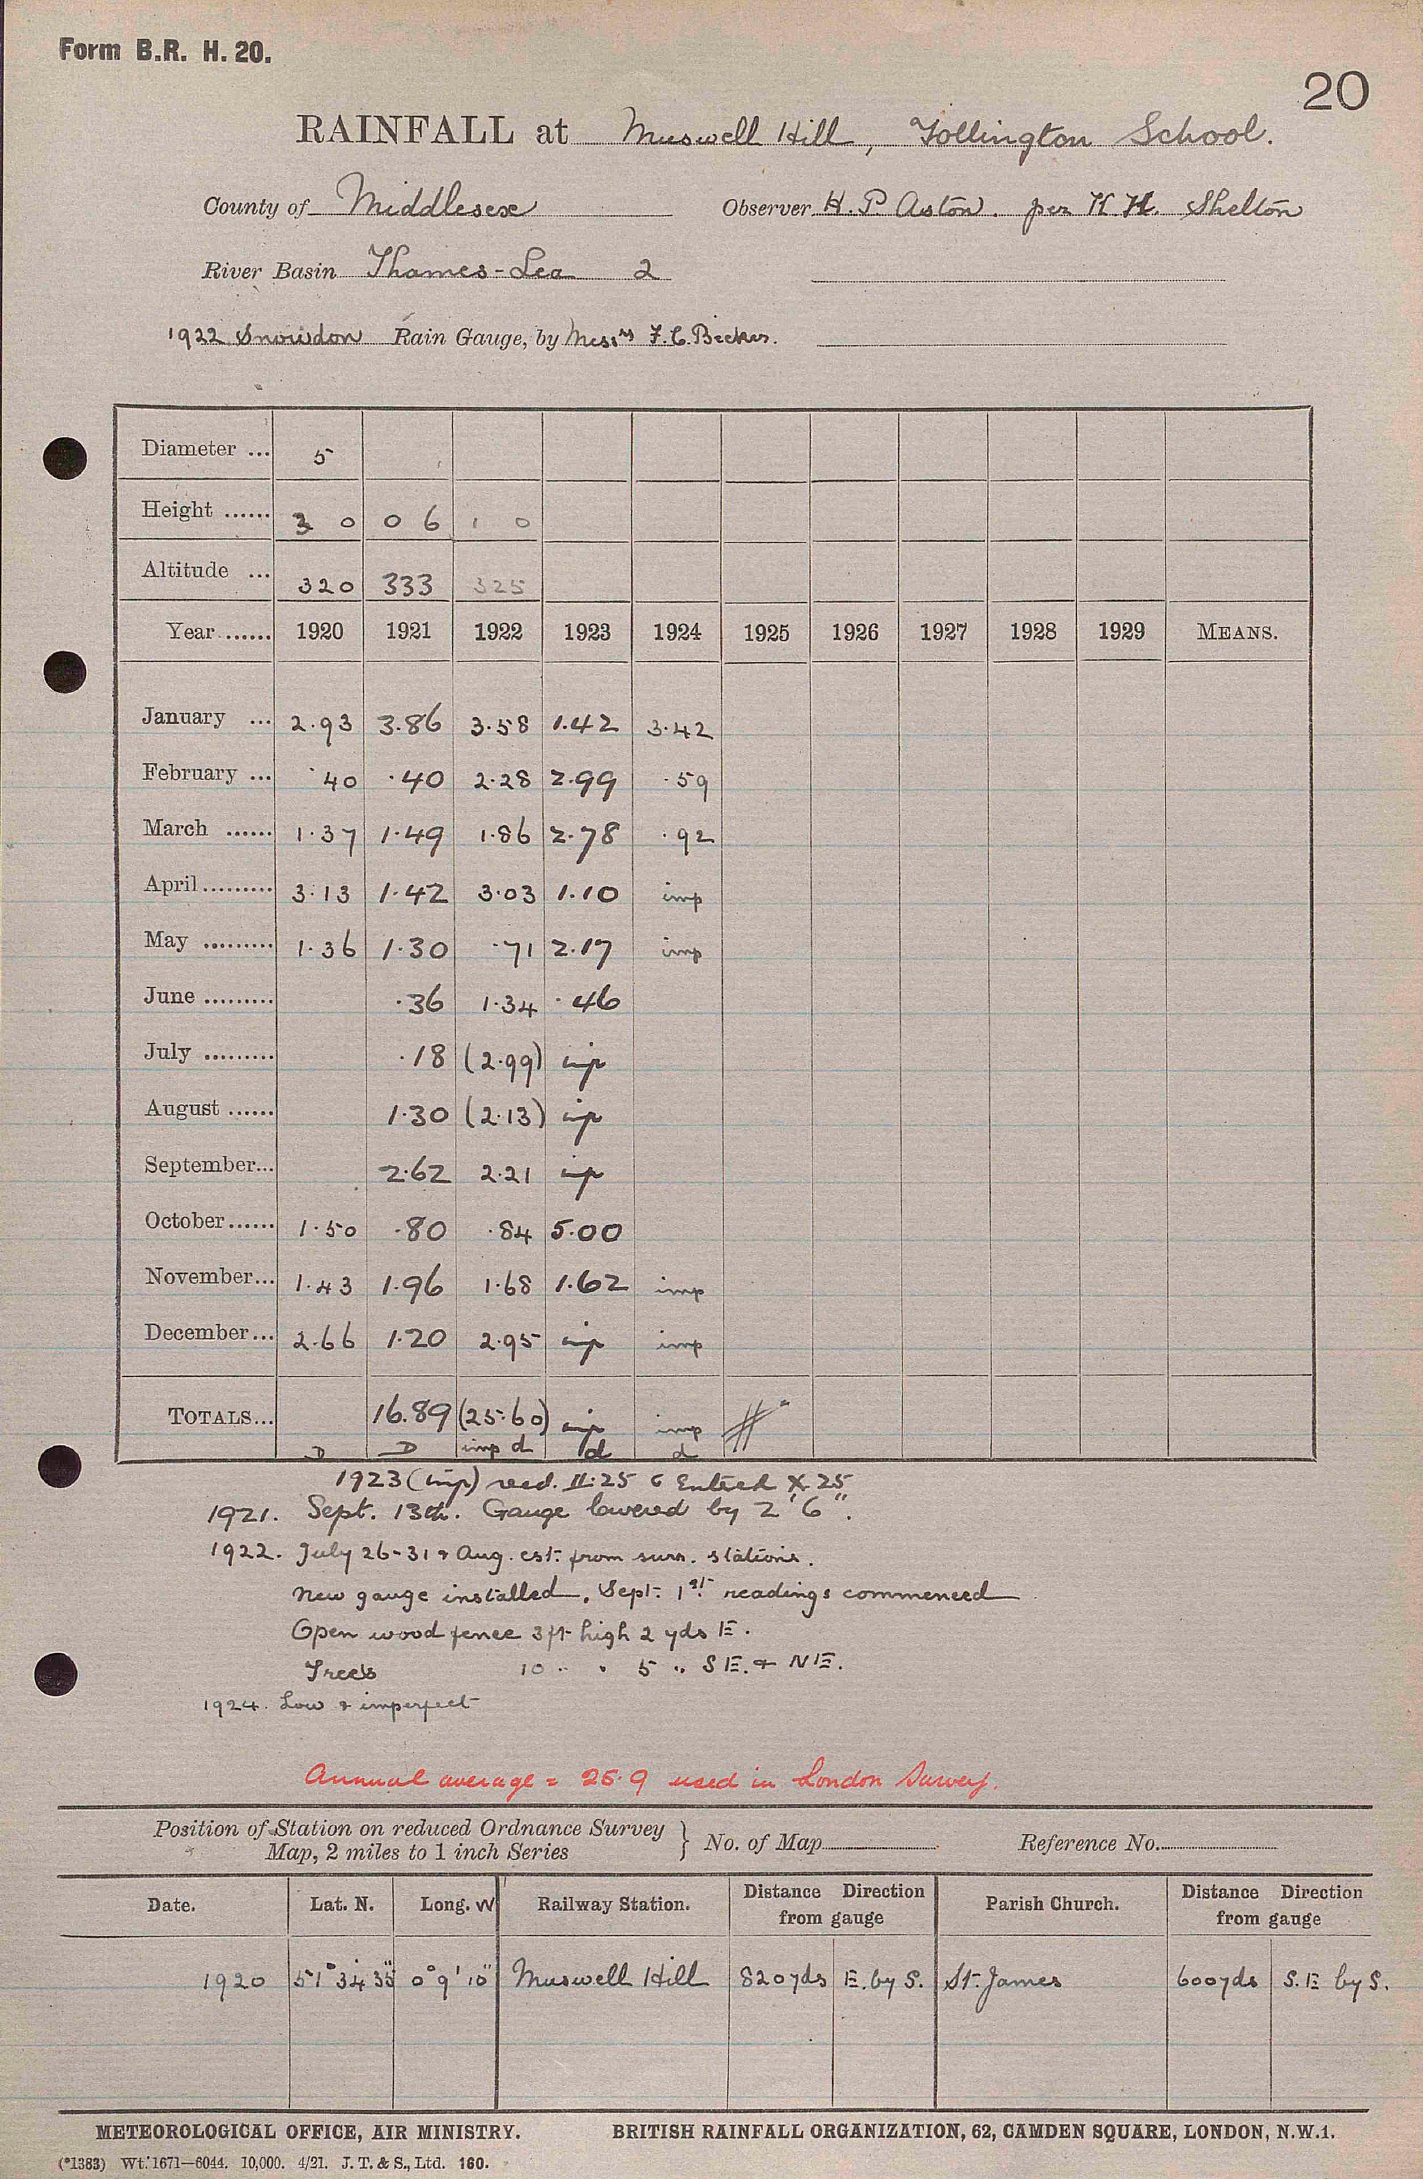 Form B.R. H. 20.
20
RAINFALL at Muswell Hill, Tollington School.
County of Middlesex Observer H. P. Aston. per H. H. Shelton
River Basin Thames-Lea 2
1922 Snowdon Rain Gauge, by Messrs F. C. Becker.
Diameter ... 5
Height ...... 3 0 0 6 1 0
Altitude ... 320 333 325
Year ...... 1920 1921 1922 1923 1924 1925 1926 1927 1928 1929 MEANS.
January ... 2.93 3.86 3.58 1.42 3.42
February ... .40 .40 2.28 2.99 .59
March ...... 1.37 1.49 1.86 2.78 .92
April ......... 3.13 1.42 3.03 1.10 imp
May ......... 1.36 1.30 .71 2.17 imp
June ......... .36 1.34 .46
July ......... .18 (2.99) imp
August ...... 1.30 (2.13) imp
September... 2.62 2.21 imp
October...... 1.50 .80 .84 5.00
November... 1.43 1.96 1.68 1.62 imp
December... 2.66 1.20 2.95 imp imp
TOTALS... 16.89 (25.60) imp imp
D D imp d d d
1923 (imp) recd. II:25 & Entered X 25
1921. Sept. 13th. Gauge lowered by 2' 6".
1922. July 26-31 & Aug. est. from surr. stations.
New gauge installed. Sept. 1st readings commenced
Open wood fence 3ft high 2 yds E.
Trees 10 " " 5 " S E. & N E.
1924. Low & imperfect
Annual average = 25.9 used in London Survey.
Position of Station on reduced Ordnance Survey
Map, 2 miles to 1 inch Series } No. of Map Reference No.
Date. Lat. N. Long. W Railway Station. Distance Direction from gauge Parish Church. Distance Direction from gauge
1920 51° 34' 35" 0° 9' 10" Muswell Hill 820 yds E. by S. St. James 600 yds S. E by S.
METEOROLOGICAL OFFICE, AIR MINISTRY. BRITISH RAINFALL ORGANIZATION, 62, CAMDEN SQUARE, LONDON, N.W.1.
(*1383) Wt. 1671—6044. 10,000. 4/21. J. T. & S., Ltd. 160.